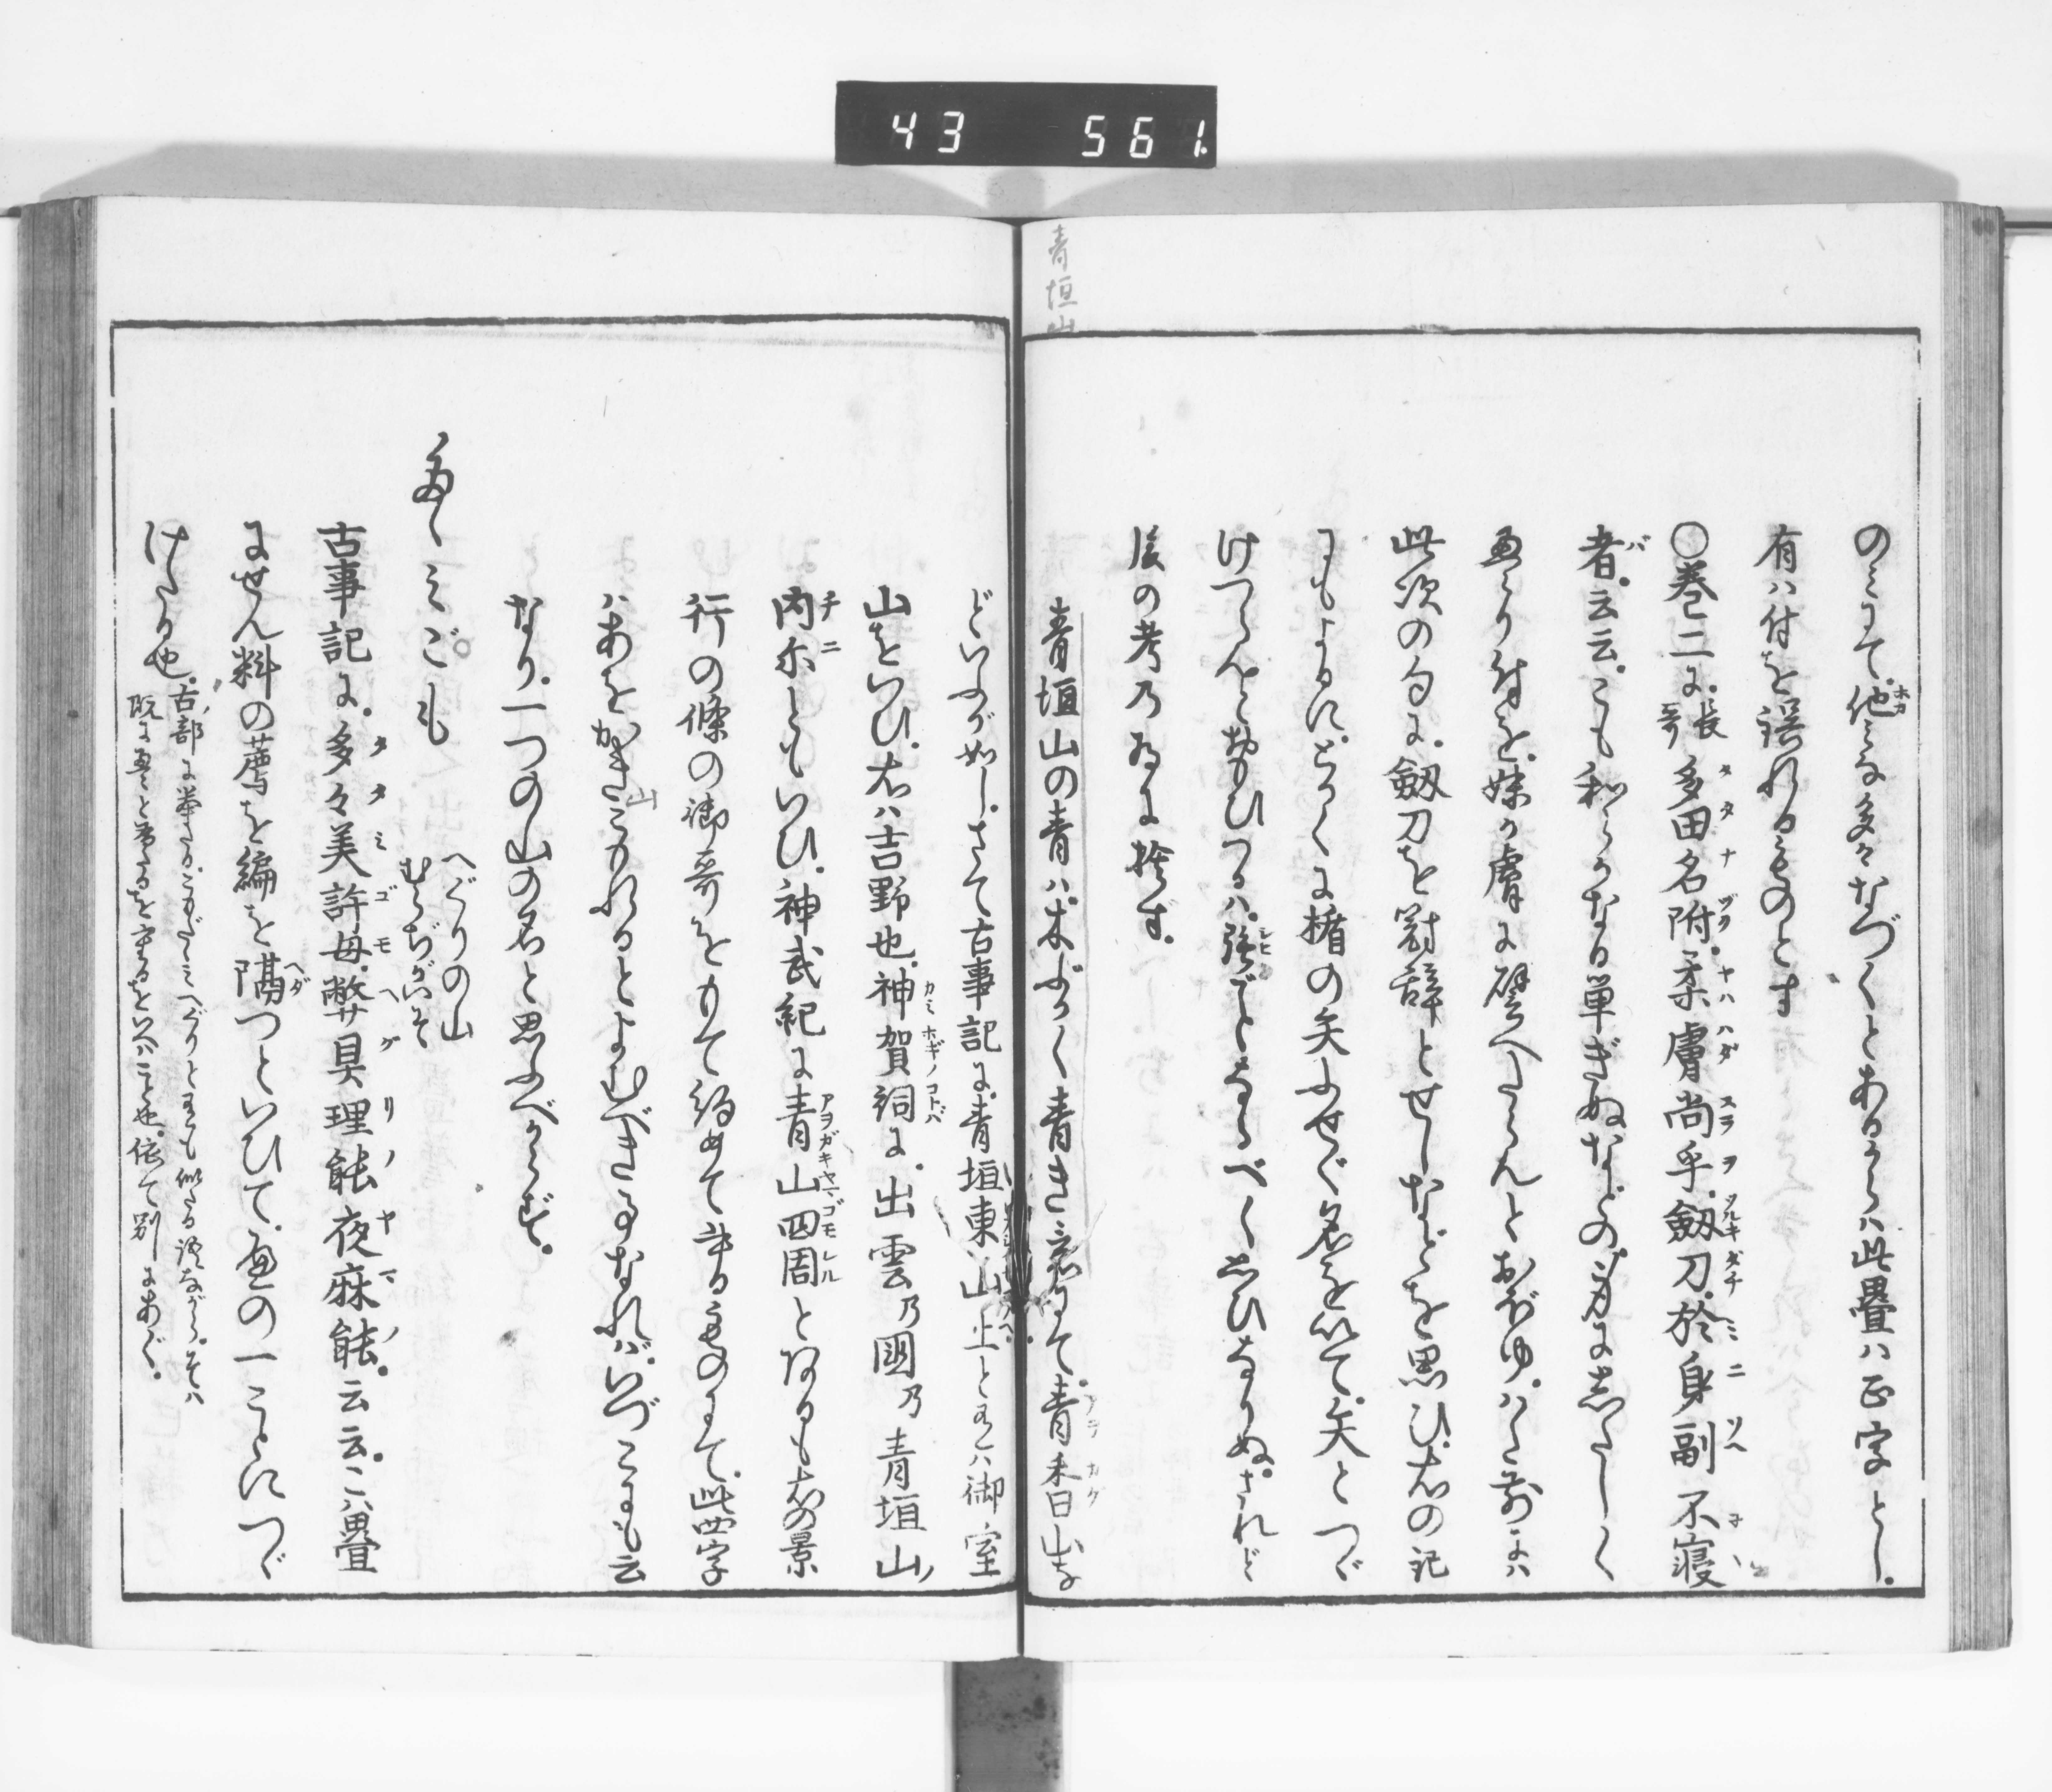 43 561.
青垣山
のミにて他ミな多々なづくとあるからハ此疊ハ正字とし。
有ハ付を誤れるものとす
〇巻二に。長哥 多田名附。柔膚尚乎。劔刀。於身副不寝
者。云云。こも和らかなる単ぎぬなどの。身にしたしく
よりそふを。妹か膚に譬へたらんとおぼゆ。ハた前にハ
此次の句に。劔刀を冠辞とせしなどを思ひ。右の記
にもよるに。とかくに楯の矢ふせぐ名を以て。矢とつゞ
けつらんとおもひつるハ。強ごとなるべく思ひなりぬ。されど
後の考の為に捨ず。
青垣山の青ハ。木ぶかく青きを
もて。青香山な
どいふが如し。さて古事記に。青垣東山上と有ハ御室
山をいひ。右ハ吉野也。神賀詞に。出雲乃國乃青垣山ノ
内尓ともいひ。神武紀に青山四周とあるも右の景
行の條の御哥をもて約めて書るものにて。此四字
ハあをがき山ごもれるとよむべき事なれバ。いづこにも云
なり。一つの山の名と思ふべからず。
たゝみごも
へぐりの山
むらぢがいそ
古事記に。多々美許母。弊具理能夜麻能。云云。こハ畳
にせん料の薦を編を隔つといひて。重の一ことにつゞ
けたる也。
古部に挙たる。こもだゝミへぐりと有も似たる語ながら。そハ
既に重と成たるを重るをいへバこと也。依て別にあぐ。